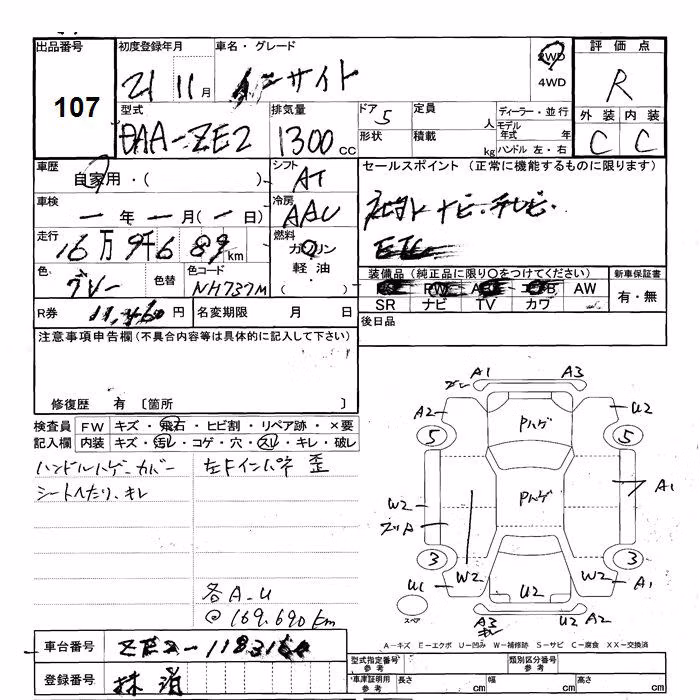 出品番号 107
初度登録年月 21 11月
車名・グレード インサイト
2WD
4WD
評価点 R
外装 内装
C C
型式 DAA-ZE2
排気量 1300 CC
ドア 5
形状
定員 人
積載 kg
ディーラー・並行
モデル年式 年
ハンドル 左・右
車歴 自家用・( )
シフト AT
セールスポイント (正常に機能するものに限ります)
車検 ー年ー月(ー日)
冷房 AAC
社外 ナビ・テレビ・
ETC
走行 16万9千689km
燃料 ガソリン
軽油・
( )
色 グレー 色替
色コード NH737M
装備品 (純正品に限り○をつけてください)
AW
SR ナビ TV カワ
新車保証書
有・無
R券 円
名変期限 月 日
後日品
注意事項申告欄(不具合内容等は具体的に記入して下さい)
修復歴 有 [箇所 ]
検査員記入欄
FW キズ・飛石・ヒビ割・リペア跡・×要
内装 キズ・汚レ・コゲ・穴・スレ・キレ・破レ
ハンドルハゲ・カバー
シートヘたり、キレ
左Fインパネ 歪
各A-U
@169,690km
A1 A3
A2 U2
5 Pハゲ 5
Pハゲ
W2 A1
3 3
U1 W2 U2 W2 A1
スペア
A3 U2 A2
キレ
A-キズ E-エクボ U-凹み W-補修跡 S-サビ C-腐食 XX-交換済
車台番号
登録番号
型式指定番号 参考
類別区分番号 参考
車庫証明用 参考
長さ cm 幅 cm 高さ cm